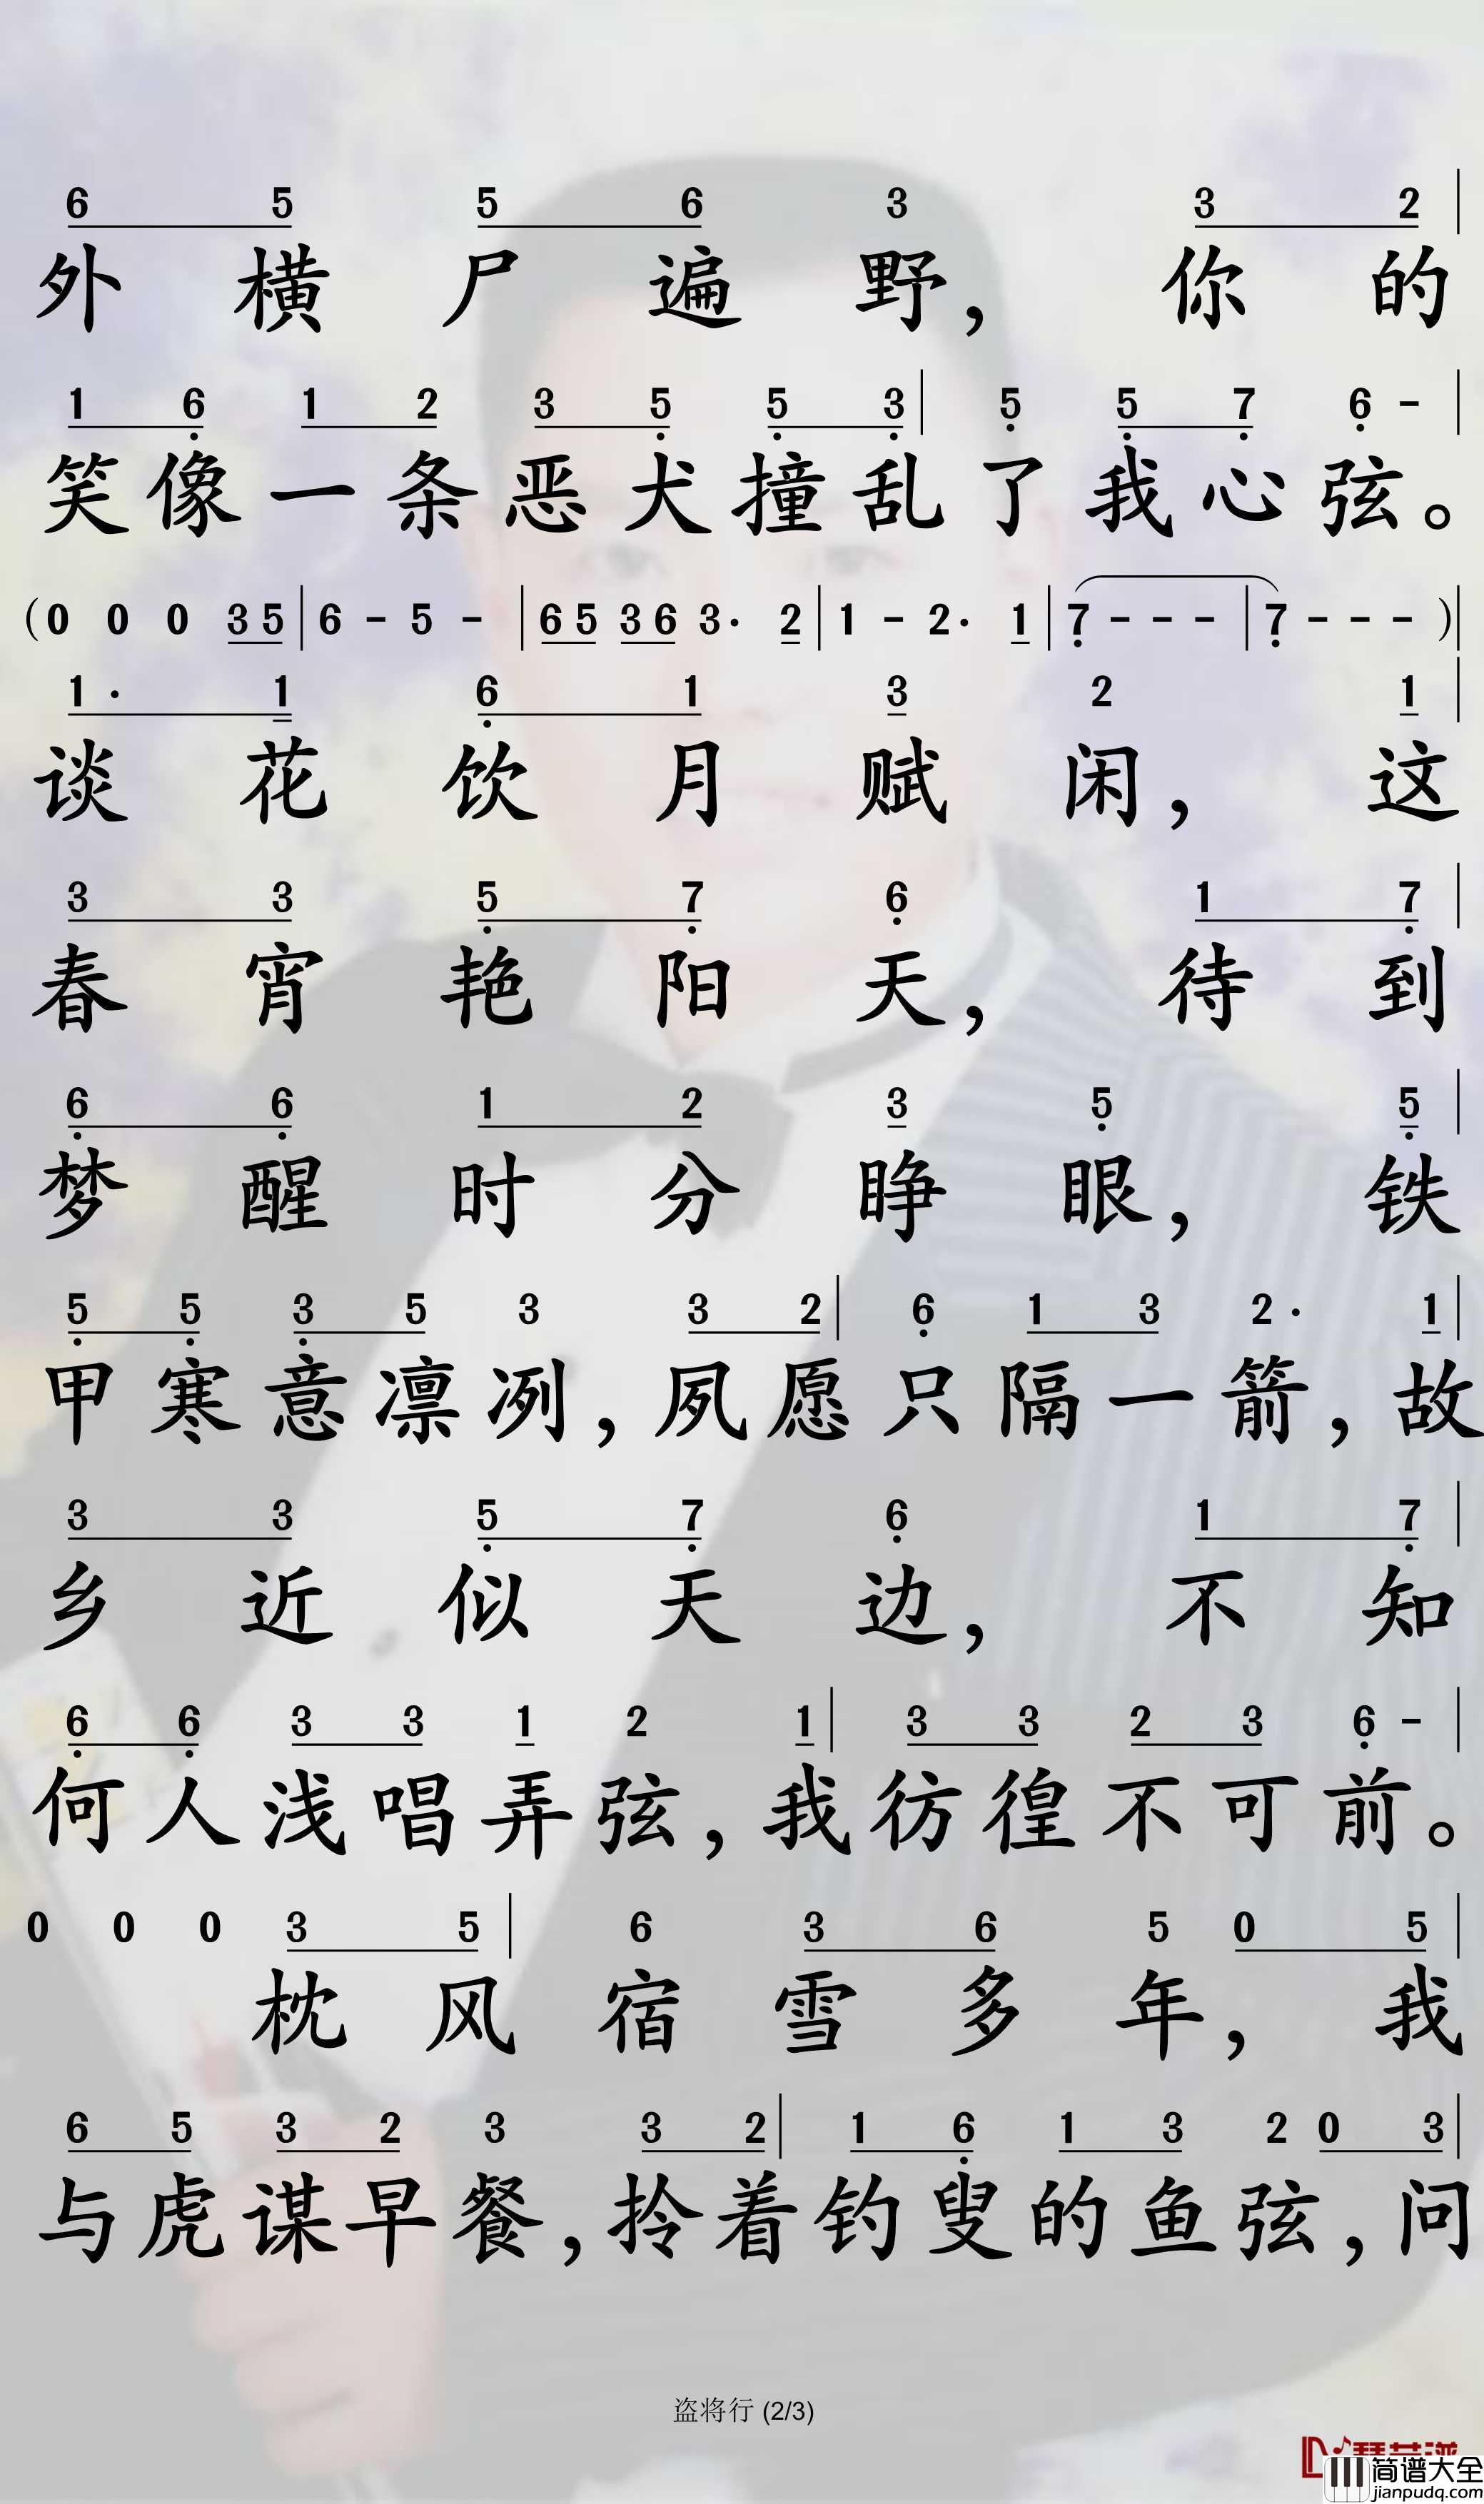 6 5 5 6 3 3 2
外横尸遍野，你的
1 6 1 2 3 5 5 3 5 5 7 6 -
笑像一条恶犬撞乱了我心弦。
(0 0 0 3 5 6 - 5 - 6 5 3 6 3· 2 1 - 2· 1 7 - - - 7 - - -)
1· 1 6 1 3 2 1
谈花饮月赋闲，这
3 3 5 7 6 1 7
春宵艳阳天，待到
6 6 1 2 3 5 5
梦醒时分睁眼，铁
5 5 3 5 3 3 2 6 1 3 2· 1
甲寒意凛冽，夙愿只隔一箭，故
3 3 5 7 6 1 7
乡近似天边，不知
6 6 3 3 1 2 1 3 3 2 3 6 -
何人浅唱弄弦，我彷徨不可前。
0 0 0 3 5 6 3 6 5 0 5
枕风宿雪多年，我
6 5 3 2 3 3 2 1 6 1 3 2 0 3
与虎谋早餐，拎着钓叟的鱼弦，问
盗将行 (2/3)
简谱大全
jianpudq.com